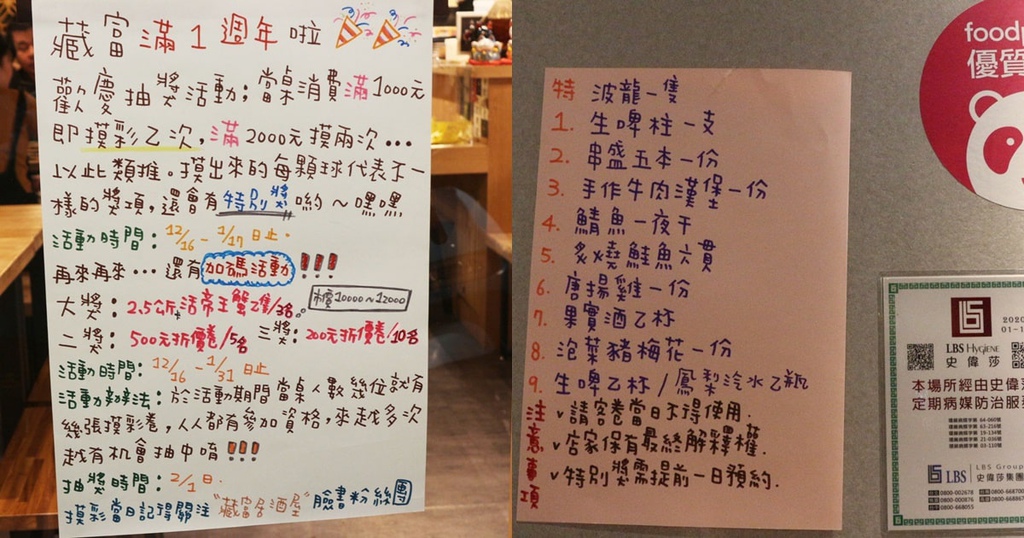 藏富滿1週年啦
歡慶抽獎活動;當桌消費滿1000元
即摸彩乙次,滿2000元摸兩次...
以此類推。摸出來的每顆球代表不一
樣的獎項,還會有特別獎喲~嘿嘿
活動時間:12/16-1/17日止.
再來再來...還有加碼活動!!!
大獎:2.5公斤活帝王蟹乙隻/3名。市價10000~12000
二獎:500元折價卷/5名 三獎:200元折價卷/10名
活動時間:12/16-1/31日止
活動辦法:於活動期間當桌人數幾位就有
幾張摸彩卷,人人都有參加資格,來越多次
越有机會抽中唷!!!
抽獎時間:2/1日.
摸彩當日記得關注"藏富居酒屋"臉書粉絲團
特 波龍一隻
1. 生啤柱一支
2. 串盛五本一份
3. 手作牛肉漢堡一份
4. 鯖魚一夜干
5. 炙燒鮭魚六貫
6. 唐揚雞一份
7. 果實酒乙杯
8. 泡菜豬梅花一份
9. 生啤乙杯/鳳梨汽水乙瓶
注意事項
v請客卷當日不得使用.
v店家保有最終解釋權.
v特別獎需提前一日預約.
food
優質
2020
01-1
LBS HYGIENE
史偉莎
本場所經由史偉
定期病媒防治服
LBS
LBS Group
史偉莎集團
0800-002678
0800-000876
0800-668055